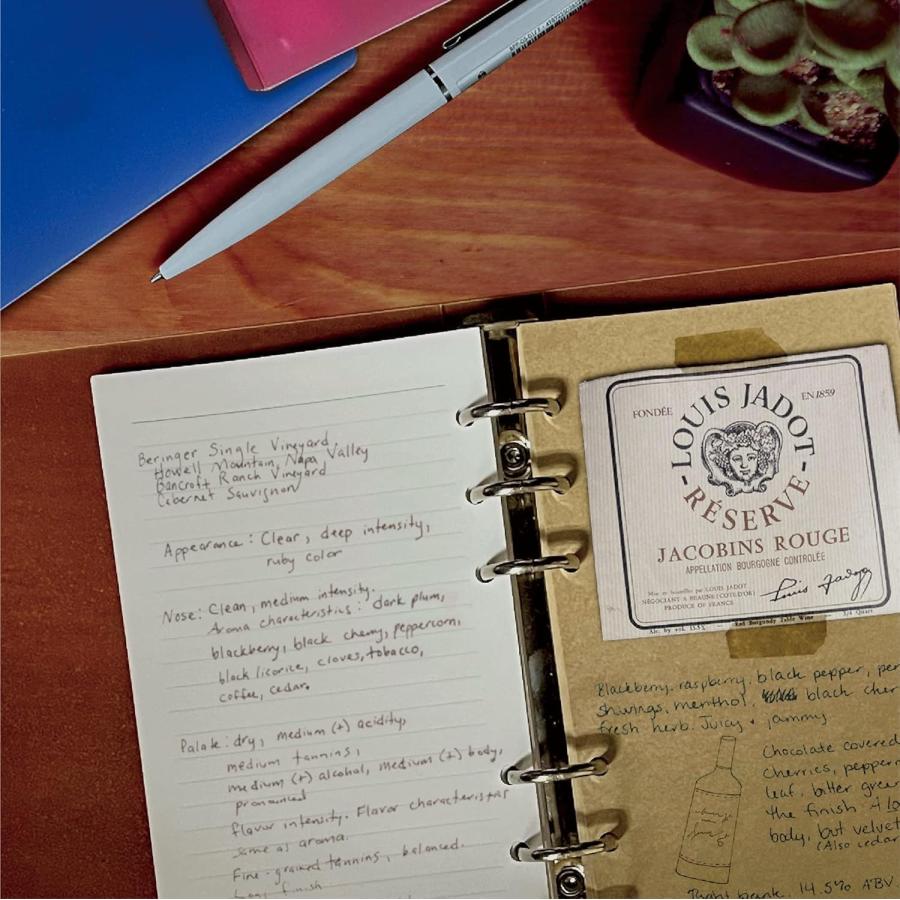 Beringer Single Vineyard
Howell Mountain, Napa Valley
Bancroft Ranch Vineyard
Cabernet Sauvignon
Appearance: Clear, deep intensity,
ruby color
Nose: Clean, medium intensity.
Aroma characteristics: dark plum,
blackberry, black cherry, peppercorn,
black licorice, cloves, tobacco,
coffee, cedar.
Palate: dry, medium (+) acidity,
medium tannins,
medium (+) alcohol, medium (+) body,
pronounced
flavor intensity. Flavor characteristics
same as aroma.
Fine-grained tannins, balanced.
Long finish
FONDÉE EN 1859
LOUIS JADOT
- RÉSERVE -
JACOBINS ROUGE
APPELLATION BOURGOGNE CONTROLÉE
Mise en bouteilles par LOUIS JADOT
NÉGOCIANT A BEAUNE (COTE-D'OR)
PRODUCE OF FRANCE
Louis Jadot
Alc. by vol. 13.5% Red Burgundy Table Wine 3/4 Quart
Blackberry, raspberry, black pepper,
shavings, menthol, black
fresh herb. Juicy + jammy
Chocolate covered
cherries,
leaf, bitter
the finish
body, but
(Also cedar
Right bank. 14.5% ABV.